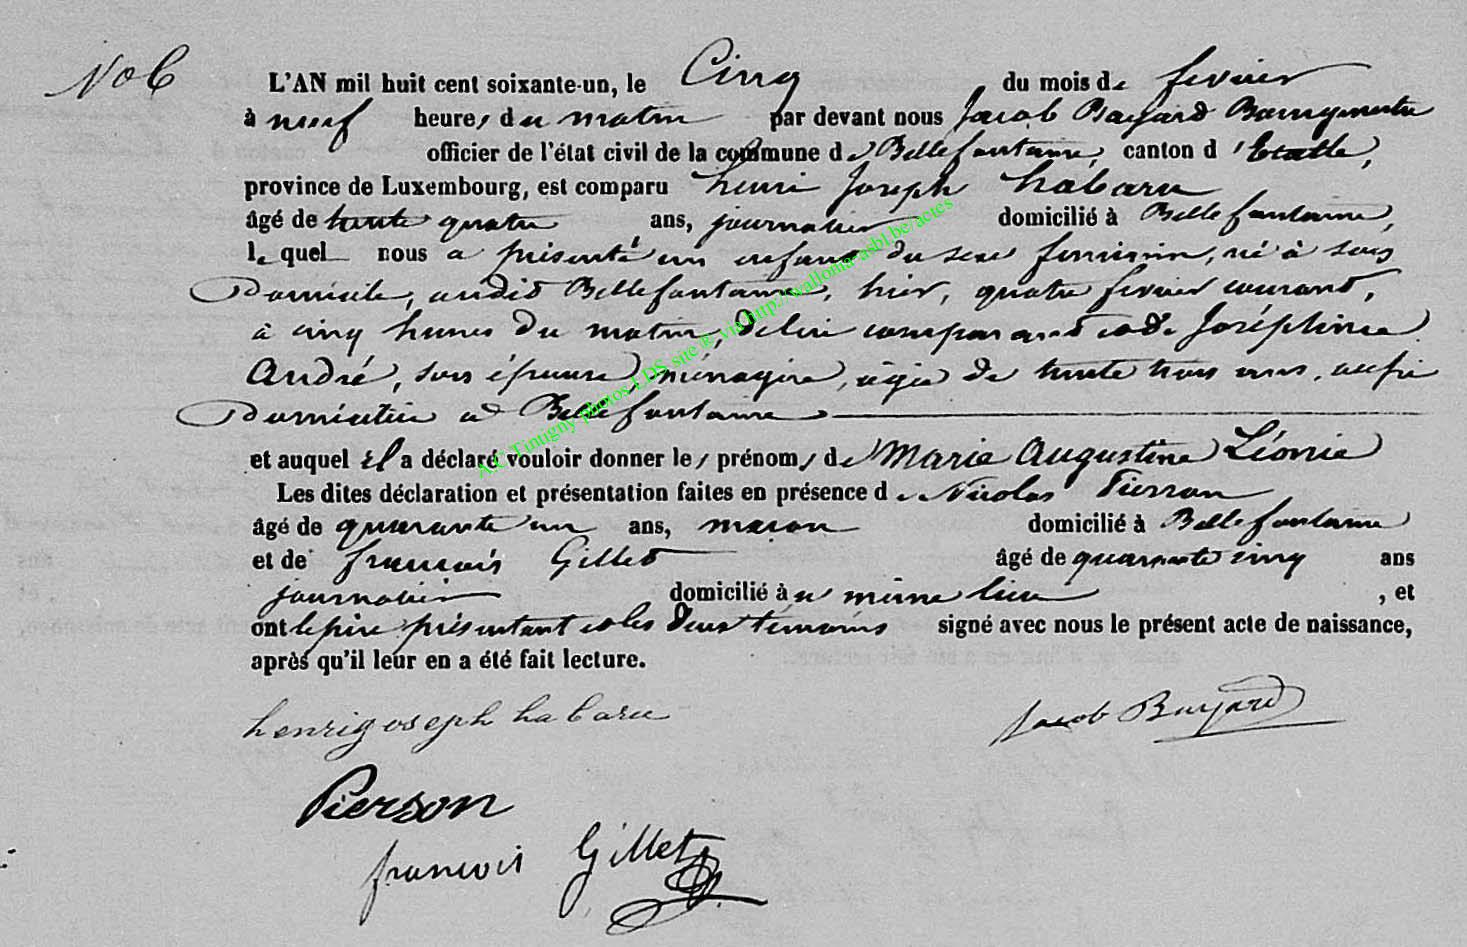 No 6
L'AN mil huit cent soixante-un, le Cinq du mois de fevrier
à neuf heures du matin par devant nous Jacob Bayard Bourgmestre
officier de l'état civil de la commune de Bellefontaine, canton d'Etalle,
province de Luxembourg, est comparu henri Joseph habaru
âgé de trente quatre ans, journalier domicilié à Bellefontaine,
lequel nous a présenté un enfant du sexe feminin, né à son
Domicile, audit Bellefontaine, hier, quatre fevrier courant,
à cinq heures du matin, de lui comparant et de Joséphine
André, son épouse, ménagère, agée de trente trois ans, aussi
Domiciliée à Bellefontaine
et auquel il a déclaré vouloir donner les prénoms de Marie Augustine Léonie
Les dites déclaration et présentation faites en présence de Nicolas Pierson
âgé de quarante un ans, maçon domicilié à Bellefontaine
et de françois Gillet âgé de quarante cinq ans
journalier domicilié à u même lieu , et
ont le père présentant et les deux témoins signé avec nous le présent acte de naissance,
après qu'il leur en a été fait lecture.
henri joseph habaru
Jacob Bayard
Pierson
françois Gillet
A.C Tintigny photos EDS site ® via http://wallonia-asbl.be/actes